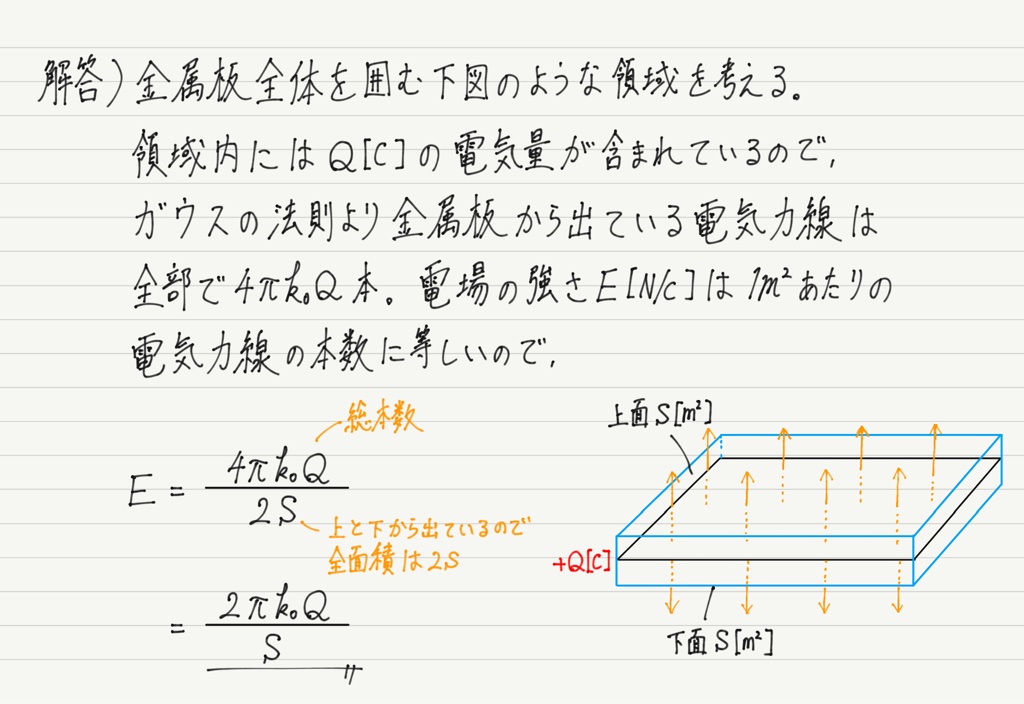 解答)金属板全体を囲む下図のような領域を考える。
領域内にはQ[C]の電気量が含まれているので,
ガウスの法則より金属板から出ている電気力線は
全部で4πk₀Q本。電場の強さE[N/C]は1m²あたりの
電気力線の本数に等しいので,
総本数
E = 4πk₀Q / 2S
上と下から出ているので
全面積は2S
= 2πk₀Q / S
上面S[m²]
+Q[C]
下面S[m²]